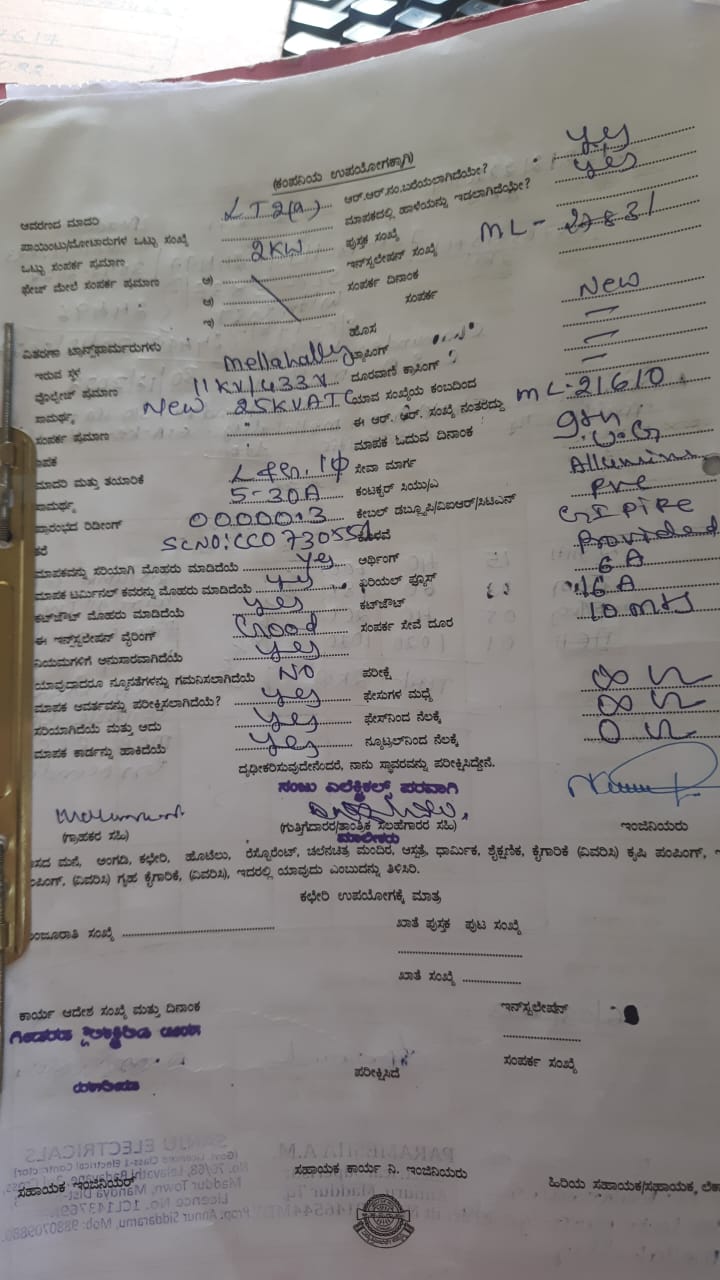 (ಕಂಪನಿಯ ಉಪಯೋಗಕ್ಕಾಗಿ)
ಆವರಣದ ಮಾದರಿ LT2(a) ಆರ್.ಆರ್.ನಂ.ಬರೆಯಲಾಗಿದೆಯೇ? yes
ಪಾಯಿಂಟು/ಮೋಟಾರುಗಳ ಒಟ್ಟು ಸಂಖ್ಯೆ ಮಾಪಕದಲ್ಲಿ ಹಾಳೆಯನ್ನು ಇಡಲಾಗಿದೆಯೇ? yes
ಒಟ್ಟು ಸಂಪರ್ಕ ಪ್ರಮಾಣ 2KW ಪುಸ್ತಕ ಸಂಖ್ಯೆ
ಫೇಜ್ ಮೇಲೆ ಸಂಪರ್ಕ ಪ್ರಮಾಣ ಅ) ಇನ್‌ಸ್ಟಲೇಷನ್ ಸಂಖ್ಯೆ ML-27831
ಆ) ಸಂಪರ್ಕ ದಿನಾಂಕ
ಇ) ಸಂಪರ್ಕ
ಹೊಸ New
ವಿತರಣಾ ಟ್ರಾನ್ಸ್‌ಫಾರ್ಮರುಗಳು
ಇರುವ ಸ್ಥಳ Mellahally ಟ್ಯಾಪಿಂಗ್ –
ವೋಲ್ಟೇಜ್ ಪ್ರಮಾಣ 11KV/433V ದೂರವಾಣಿ ಕ್ರಾಸಿಂಗ್ –
ಸಾಮರ್ಥ್ಯ New 25KVA TC ಯಾವ ಸಂಖ್ಯೆಯ ಕಂಬದಿಂದ –
ಸಂಪರ್ಕ ಪ್ರಮಾಣ ಈ ಆರ್. ಆರ್. ಸಂಖ್ಯೆ ನಂತರದ್ದು ML-21610
ಮಾಪಕ ಓದುವ ದಿನಾಂಕ 9th
ಮಾದರಿ ಮತ್ತು ತಯಾರಿಕೆ ಸೇವಾ ಮಾರ್ಗ
ಸಾಮರ್ಥ್ಯ 5-30A ಕಂಟಕ್ಟರ್ ಸಿಯು/ಎ
ಪ್ರಾರಂಭದ ರಿಡಿಂಗ್ 0000013 ಕೇಬಲ್ ಡಬ್ಲ್ಯೂಪಿ/ವಿಐಆರ್/ಸಿಟಿಎಸ್ PVC
SCNO:CC0730551 GI PIPE
ಮಾಪಕವನ್ನು ಸರಿಯಾಗಿ ಮೊಹರು ಮಾಡಿದೆಯೆ yes ಅರ್ಥಿಂಗ್ Provided
ಮಾಪಕ ಟರ್ಮಿನಲ್ ಕವರನ್ನು ಮೊಹರು ಮಾಡಿದೆಯೆ yes ಏರಿಯಲ್ ಫ್ಯೂಸ್ 6A
ಕಟ್‌ಔಟ್ ಮೊಹರು ಮಾಡಿದೆಯೆ yes ಕಟ್‌ಔಟ್ 16A
ಈ ಇನ್‌ಸ್ಟಲೇಷನ್ ವೈರಿಂಗ್ Good ಸಂಪರ್ಕ ಸೇವೆ ದೂರ 10 mts
ನಿಯಮಗಳಿಗೆ ಅನುಸಾರವಾಗಿದೆಯೆ yes
ಯಾವುದಾದರೂ ನ್ಯೂನತೆಗಳನ್ನು ಗಮನಿಸಲಾಗಿದೆಯೆ NO ಪರೀಕ್ಷೆ
ಮಾಪಕ ಆವರ್ತವನ್ನು ಪರೀಕ್ಷಿಸಲಾಗಿದೆಯೆ? yes ಫೇಸುಗಳ ಮಧ್ಯೆ ∞
ಸರಿಯಾಗಿದೆಯೆ ಮತ್ತು ಅದು yes ಫೇಸ್‌ನಿಂದ ನೆಲಕ್ಕೆ ∞
ಮಾಪಕ ಕಾರ್ಡನ್ನು ಹಾಕಿದೆಯೆ yes ನ್ಯೂಟ್ರಲ್‌ನಿಂದ ನೆಲಕ್ಕೆ 0
ದೃಢೀಕರಿಸುವುದೇನೆಂದರೆ, ನಾನು ಸ್ಥಾವರವನ್ನು ಪರೀಕ್ಷಿಸಿದ್ದೇನೆ.
ಸಂಜು ಎಲೆಕ್ಟ್ರಿಕಲ್ಸ್ ಪರವಾಗಿ
(ಗ್ರಾಹಕರ ಸಹಿ) (ಗುತ್ತಿಗೆದಾರರ/ತಾಂತ್ರಿಕ ಸಲಹೆಗಾರರ ಸಹಿ) ಇಂಜಿನಿಯರು
ಮಾಲೀಕರು
ವಾಸದ ಮನೆ, ಅಂಗಡಿ, ಕಛೇರಿ, ಹೊಟೆಲು, ರೆಸ್ಟೋರೆಂಟ್, ಚಲನಚಿತ್ರ ಮಂದಿರ, ಆಸ್ಪತ್ರೆ, ಧಾರ್ಮಿಕ, ಶೈಕ್ಷಣಿಕ, ಕೈಗಾರಿಕೆ (ವಿವರಿಸಿ) ಕೃಷಿ ಪಂಪಿಂಗ್,
ಪಂಪಿಂಗ್, (ವಿವರಿಸಿ) ಗೃಹ ಕೈಗಾರಿಕೆ, (ವಿವರಿಸಿ), ಇದರಲ್ಲಿ ಯಾವುದು ಎಂಬುದನ್ನು ತಿಳಿಸಿರಿ.
ಕಛೇರಿ ಉಪಯೋಗಕ್ಕೆ ಮಾತ್ರ
ಮಂಜೂರಾತಿ ಸಂಖ್ಯೆ ಖಾತೆ ಪುಸ್ತಕ ಪುಟ ಸಂಖ್ಯೆ
ಖಾತೆ ಸಂಖ್ಯೆ
ಕಾರ್ಯ ಆದೇಶ ಸಂಖ್ಯೆ ಮತ್ತು ದಿನಾಂಕ ಇನ್‌ಸ್ಟಲೇಷನ್
ಸಂಪರ್ಕ ಸಂಖ್ಯೆ
ಪರೀಕ್ಷಿಸಿದೆ
ಸಹಾಯಕ ಇಂಜಿನಿಯರ್ ಸಹಾಯಕ ಕಾರ್ಯ ನಿ. ಇಂಜಿನಿಯರು ಹಿರಿಯ ಸಹಾಯಕ/ಸಹಾಯಕ,